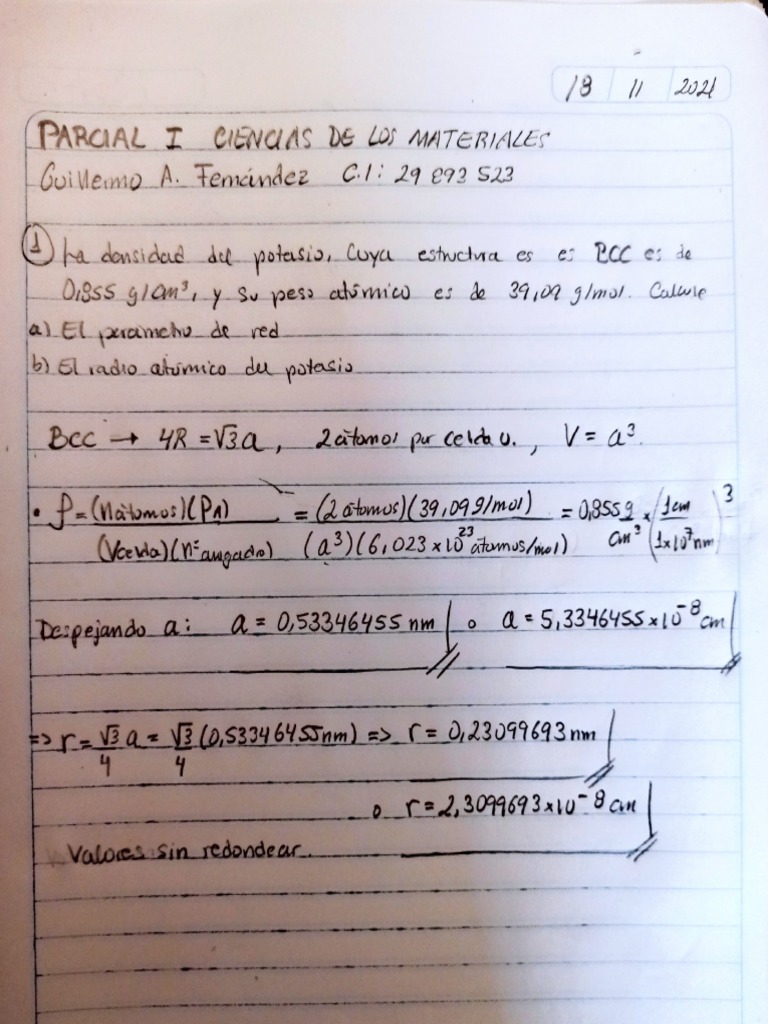 18 11 2021
PARCIAL I CIENCIAS DE LOS MATERIALES
Guillermo A. Fernández C.I: 29 893 523
① La densidad del potasio, cuya estructura es es BCC es de
0,855 g/cm³, y su peso atómico es de 39,09 g/mol. Calcule
a) El parámetro de red
b) El radio atómico del potasio
BCC → 4R = √3a, 2 átomos por celda u., V = a³.
• ρ = (nátomos)(PA) = (2 átomos)(39,09 g/mol) = 0,855 g × (1cm)³
(Vcelda)(nº avogadro) (a³)(6,023 × 10²³ átomos/mol) cm³ (1×10⁷ nm)
Despejando a: a = 0,53346455 nm o a = 5,3346455 × 10⁻⁸ cm
=> r = √3 a = √3 (0,53346455nm) => r = 0,23099693 nm
4 4
o r = 2,3099693×10⁻⁸ cm
Valores sin redondear.